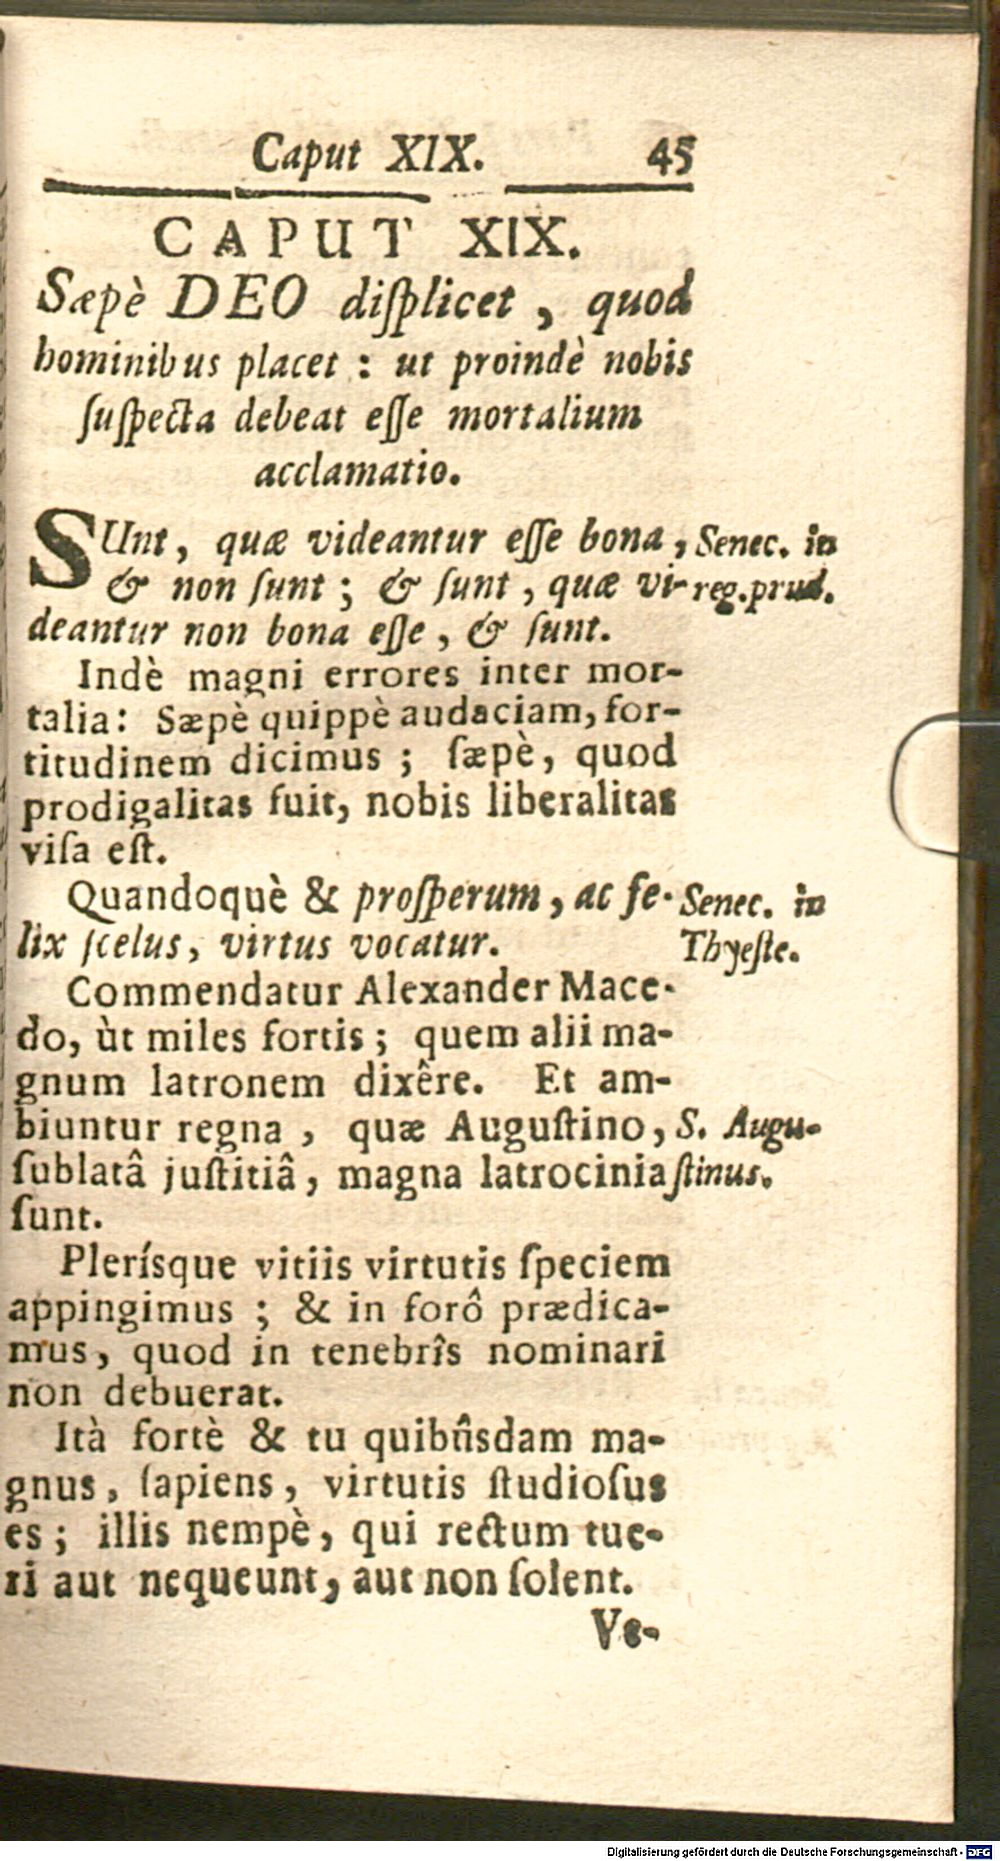 Caput XIX. 45
CAPUT XIX.
Sæpè DEO diſplicet, quod
hominibus placet: ut proindè nobis
ſuſpecta debeat eſſe mortalium
acclamatio.
SUnt, quæ videantur eſſe bona, Senec. in
& non ſunt; & ſunt, quæ vi- reg. prud.
deantur non bona eſſe, & ſunt.
Indè magni errores inter mor-
talia: Sæpè quippè audaciam, for-
titudinem dicimus; ſæpè, quod
prodigalitas fuit, nobis liberalitas
viſa eſt.
Quandoquè & proſperum, ac fe- Senec. in
lix ſcelus, virtus vocatur. Thyeſte.
Commendatur Alexander Mace-
do, ùt miles fortis; quem alii ma-
gnum latronem dixêre. Et am-
biuntur regna, quæ Auguſtino, S. Augu-
ſublatâ juſtitiâ, magna latrocinia ſtinus.
ſunt.
Plerísque vitiis virtutis ſpeciem
appingimus; & in forô prædica-
mus, quod in tenebrîs nominari
non debuerat.
Ità fortè & tu quibûsdam ma-
gnus, ſapiens, virtutis ſtudioſus
es; illis nempè, qui rectum tue-
ri aut nequeunt, aut non ſolent.
Ve-
Digitalisierung gefördert durch die Deutsche Forschungsgemeinschaft - DFG